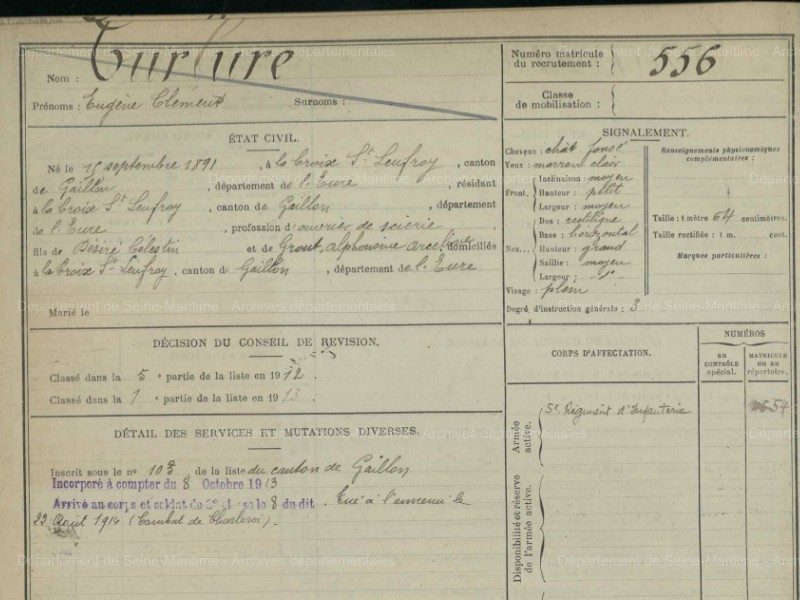 Nom : Turlure
Prénoms : Eugène Clément Surnoms :
ÉTAT CIVIL.
Né le 15 septembre 1891, à la Croix St Leufroy, canton
de Gaillon, département de l'Eure, résidant
à la Croix St Leufroy, canton de Gaillon, département
de l'Eure, profession d'ouvrier de scierie,
fils de Désiré Célestin et de Grout, alphonsine domiciliés
à la Croix St Leufroy, canton de Gaillon, département de l'Eure
Marié le
DÉCISION DU CONSEIL DE REVISION.
Classé dans la 5e partie de la liste en 1912.
Classé dans la 1e partie de la liste en 1913.
DÉTAIL DES SERVICES ET MUTATIONS DIVERSES.
Inscrit sous le no 103 de la liste du canton de Gaillon
Incorporé à compter du 8 Octobre 1913
Arrivé au corps et soldat de 2e classe le 8 du dit. Tué à l'ennemi le
22 Août 1914 (Combat de Charleroi).
Numéro matricule du recrutement : 556
Classe de mobilisation :
SIGNALEMENT.
Cheveux : chât foncé
Yeux : marron clair
Front. Inclinaison : moyen
Hauteur : petit
Largeur : moyen
Nez. Dos : rectiligne
Base : horizontal
Hauteur : grand
Saillie : moyen
Largeur : -d°-
Visage : plein
Degré d'instruction générale : 3
Renseignements physionomiques complémentaires :
Taille : 1 mètre 64 centimètres.
Taille rectifiée : 1 m. cent.
Marques particulières :
CORPS D'AFFECTATION.
NUMÉROS
AU CONTRÔLE spécial.
MATRICULE OU AU répertoire.
Armée active.
5e Régiment d'Infanterie
Disponibilité et réserve de l'armée active.
Département de Seine-Maritime - Archives départementales